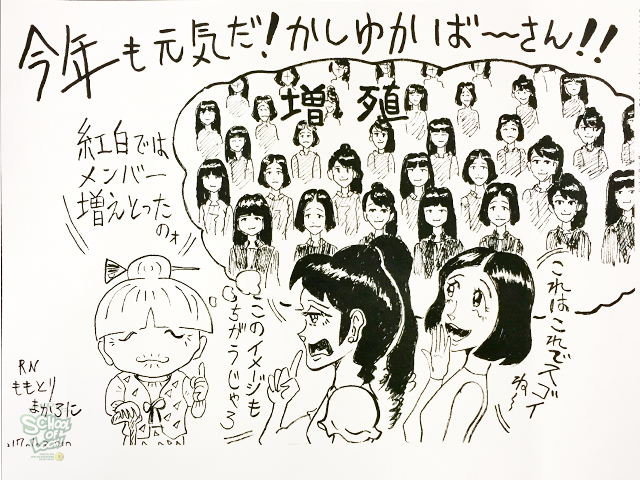 今年も元気だ!かしゆかば〜さん!!
増殖
紅白では
メンバー
増えとった
のォ
このイメージも
ちがうじゃろ
これはこれでスゴイ
ね〜
RN
ももとり
まかろに
SCHOOL
OF
LOCK!